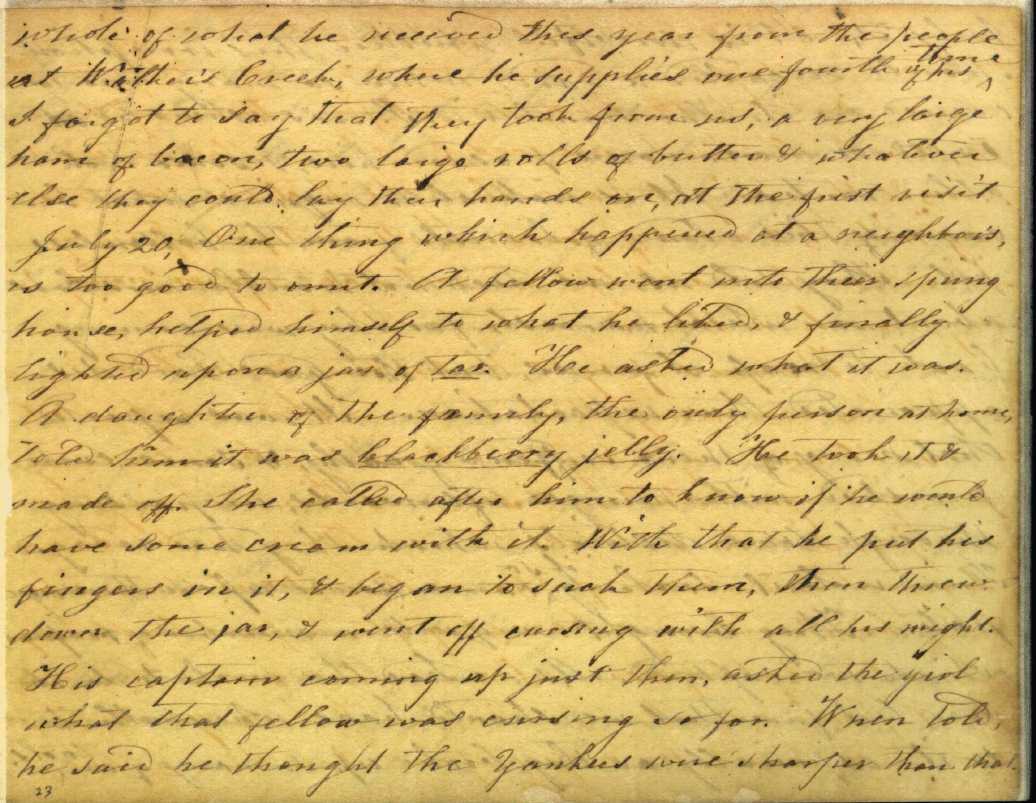 whole of what he received this year from the people
at Walker's Creek, where he supplies one fourth of his time
I forgot to say that they took from us, a very large
ham of bacon, two large rolls of butter & whatever
else they could lay their hands on, at the first visit
July 20, One thing which happened at a neighbor's,
is too good to omit. A fellow went into their spring
house, helped himself to what he liked, & finally
lighted upon a jar of tar. He asked what it was.
A daughter of the family, the only person at home,
told him it was blackberry jelly. He took it &
made off. She called after him to know if he would
have some cream with it. With that he put his
fingers in it, & began to suck them, then threw
down the jar, & went off cursing with all his might.
His captain coming up just then, asked the girl
what that fellow was cursing so for. When told,
he said he thought the Yankees were sharper than that.
23